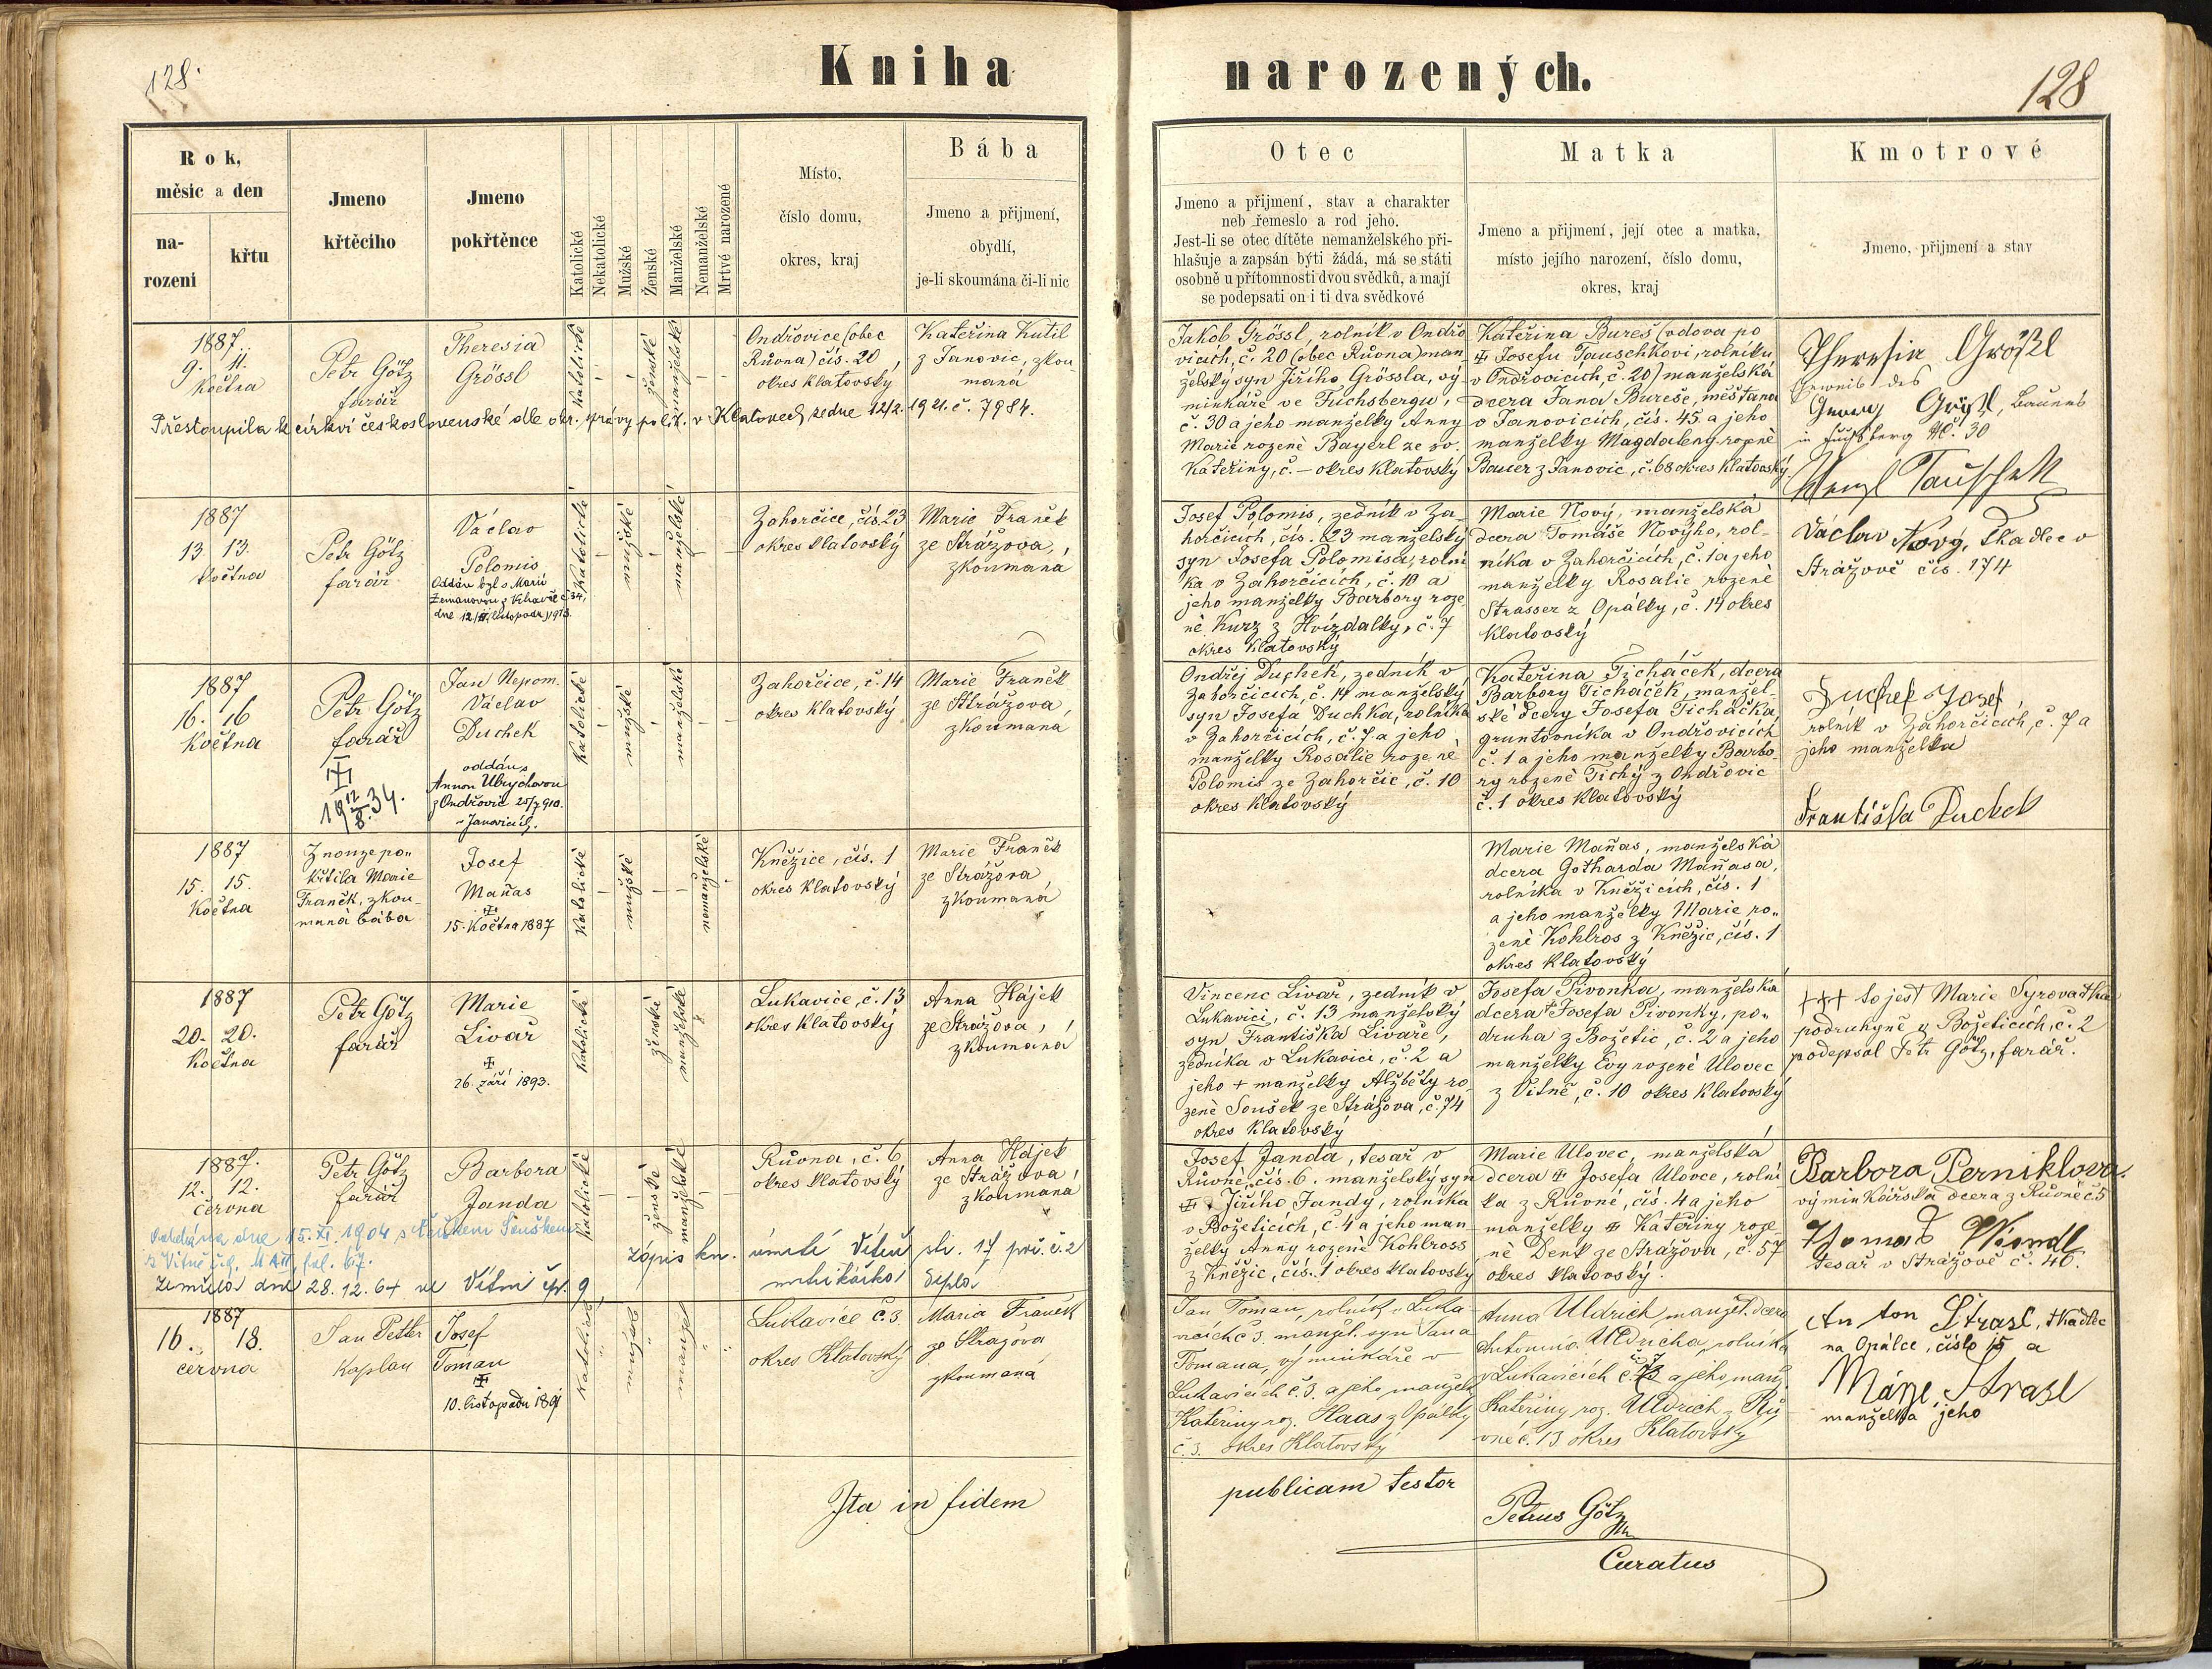 128.
Kniha narozených.
128
Rok,
měsíc a den
na-
rození
křtu
Jmeno
křtěcího
Jmeno
pokřtěnce
Katolické
Nekatolické
Mužské
Ženské
Manželské
Nemanželské
Mrtvé narozené
Místo,
číslo domu,
okres, kraj
Bába
Jmeno a přijmení,
obydlí,
je-li skoumána či-li nic
Otec
Jmeno a přijmení, stav a charakter
neb řemeslo a rod jeho.
Jest-li se otec dítěte nemanželského při-
hlašuje a zapsán býti žádá, má se státi
osobně u přítomnosti dvou svědků, a mají
se podepsati on i ti dva svědkové
Matka
Jmeno a přijmení, její otec a matka,
místo jejího narození, číslo domu,
okres, kraj
Kmotrové
Jmeno, přijmení a stav
1887.
9. 11.
Května
Petr Götz
farář
Theresia
Grössl
katolické
ženské
manželské
Ondřovice (obec
Růvna) čís. 20,
okres Klatovský
Kateřina Kutil
z Janovic, zkou
maná
Přestoupila k církvi československé dle okr. správy polit. v Klatovech ze dne 12/2. 1921. č. 7984.
Jakob Grössl, rolník v Ondřo
vicích, č. 20 (obec Růvna) man-
želský syn Jiřího Grössla, vý
minkáře ve Fuchsbergu,
č. 30 a jeho manželky Anny
Marie rozené Bayerl ze sv.
Kateřiny, č. – okres Klatovský
Kateřina Bureš (vdova po
Josefu Tauschkovi, rolníku
v Ondřovicích, č. 20) manželská
dcera Jana Bureše, měšťana
v Janovicích, čís. 45. a jeho
manželky Magdaleny rozené
Bauer z Janovic, č. 68 okres Klatovský
Theresia Größl
Georg Größl, Bauers
in Fuchsberg N. 30
Wenzl Tauschek
1887
13 13.
Května
Petr Götz
farář
Václav
Polomis
Oddán byl s Marií
Zemanovou
dne 12/II. listopadu 1913.
Katolické
mužské
manželské
Zahorčice, čís. 23
okres Klatovský
Marie Franěk
ze Strážova,
zkoumaná
Josef Polomis, zedník v Za-
horčicích, čís. 23 manželský
syn Josefa Polomisa, rolní
ka v Zahorčicích, č. 10 a
jeho manželky Barbory roze
né Kurz z Hvízdalky, č. 7
okres Klatovský
Marie Nový, manželská
dcera Tomáše Nového, rol-
níka v Zahorčicích, č. 1 a jeho
manželky Rosalie rozené
Strasser z Opálky, č. 14 okres
Klatovský
Václav Nový, tkadlec v
Strážově čís. 174
1887
16. 16
Května
Petr Götz
farář
19 12/8. 34.
Jan Nepom.
Václav
Duchek
oddán s
Annou Ulrychovou
z Ondřovic 25/7 910.
v Janovicích.
Katolické
mužské
manželské
Zahorčice, č. 14
okres Klatovský
Marie Franěk
ze Strážova,
zkoumaná
Ondřej Duchek, zedník v
Zahorčicích, č. 14 manželský
syn Josefa Duchka, rolníka
v Zahorčicích, č. 7 a jeho
manželky Rosalie rozené
Polomis ze Zahorčic, č. 10
okres Klatovský
Kateřina Ticháček, dcera
Barbory Ticháček, manžel-
ské dcery Josefa Ticháčka,
gruntovníka v Ondřovicích
č. 1 a jeho manželky Barbo-
ry rozené Tichý z Ondřovic
č. 1 okres Klatovský
Duchek Josef,
rolník v Zahorčicích, č. 7 a
jeho manželka
Františka Duchek
1887
15. 15.
Května
Z nouze po-
křtila Marie
Franěk, zkou-
maná bába
Josef
Maňas
15. Května 1887
Katolické
mužské
nemanželské
Kněžice, čís. 1
okres Klatovský
Marie Franěk
ze Strážova
zkoumaná
Marie Maňas, manželská
dcera Gotharda Maňasa,
rolníka v Kněžicích, čís. 1
a jeho manželky Marie ro-
zené Kohlros z Kněžic, čís. 1
okres Klatovský
1887
20. 20.
Května
Petr Götz
farář
Marie
Livař
26. září 1893.
Katolické
ženské
manželské
Lukavice, č. 13
okres Klatovský
Anna Hájek
ze Strážova,
zkoumaná
Vincenc Livař, zedník v
Lukavici, č. 13 manželský
syn Františka Livaře,
zedníka v Lukavici, č. 2 a
jeho + manželky Alžběty ro
zené Soušek ze Strážova, č. 74
okres Klatovský
Josefa Pivonka, manželská
dcera + Josefa Pivonky, po-
druha z Božetic, č. 2 a jeho
manželky Evy rozené Ulovec
z Vítně, č. 10 okres Klatovský
+++ to jest Marie Syrovatka
podruhyně v Božeticích, č. 2
podepsal Petr Götz, farář.
1887.
12. 12.
června
Petr Götz
farář
Barbora
Janda
Katolické
ženské
manželské
Růvna, č. 6
okres Klatovský
Anna Hájek
ze Strážova,
zkoumaná
Oddána dne 15. XI. 1904 s
zápis kn. úmrtí Víteň str. 17 poř. č. 2
Zemřela dne 28. 12. 64 ve Vítni čp. 9
matrikářka
Josef Janda, tesař v
Růvně, čís. 6. manželský syn
Jiřího Jandy, rolníka
v Božeticích, č. 4 a jeho man-
želky Anny rozené Kohlross
z Kněžic, čís. 1 okres Klatovský
Marie Ulovec, manželská
dcera Josefa Ulovce, rolní
ka z Růvné, čís. 4 a jeho
manželky Kateřiny roze
né Denk ze Strážova, č. 57
okres Klatovský.
Barbora Perniklova.
výminkářská dcera z Růvné č 5
Thomas
tesař v Strážově č. 46.
1887
16. 18.
června
Jan Petter
Kaplan
Josef
Toman
10. listopadu 1891
Katolické
mužské
manžel
Lukavice č. 3.
okres Klatovský
Maria Franěk
ze Stražova
zkoumaná
Jan Toman, rolník v Luka-
vicích č 3. manžel. syn Jana
Tomana, výminkáře v
Lukavicích č. 3. a jeho manželk
Kateřiny roz. Haas z Opálky
č. 3. okres Klatovský
Anna Uldrich manžel. dcera
Antonína Uldricha, rolníka
v Lukavicích č. 7 a jeho manž.
Kateřiny roz. Uldrich z Rů
vné č. 13 okres Klatovský
Anton Strasl, tkadlec
na Opálce, číslo 15 a
Marie Strasl
manželka jeho
Ita in fidem publicam testor
Petrus Götz
Curatus